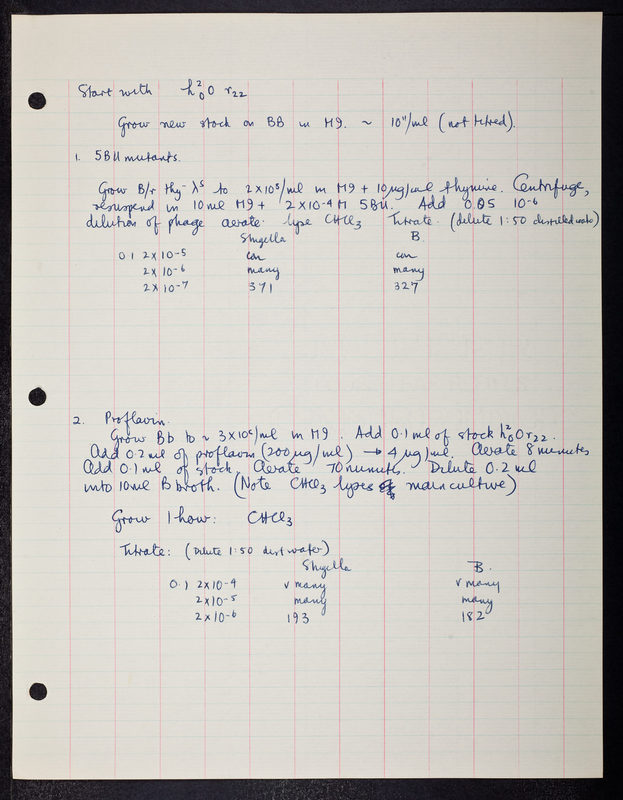 Start with h²₀O r₂₂
Grow new stock on BB in M9. ~ 10¹¹/ml (not titred).
1. 5BU mutants.
Grow B/r thy⁻ λˢ to 2×10⁸/ml in M9 + 10µg/ml thymine. Centrifuge,
resuspend in 10ml M9 + 2×10⁻⁴M 5BU. Add 0.05 10⁻⁶
dilution of phage aerate lyse CHCl₃ Titrate. (dilute 1:50 distilled water)
Shigella B.
0.1 2×10⁻⁵ con con
2×10⁻⁶ many many
2×10⁻⁷ 371 327
2. Proflavin.
Grow Bb to ~ 3×10⁸/ml in M9. Add 0.1ml of stock h²₀O r₂₂.
Add 0.2ml of proflavin (200µg/ml) → 4µg/ml. Aerate 8 minutes
Add 0.1ml of stock, Aerate 70 minutes. Dilute 0.2ml
into 10ml B broth. (Note CHCl₃ lyses main culture)
Grow 1 hour: CHCl₃
Titrate: (Dilute 1:50 dist water)
Shigella B.
0.1 2×10⁻⁴ v many v many
2×10⁻⁵ many many
2×10⁻⁶ 193 182